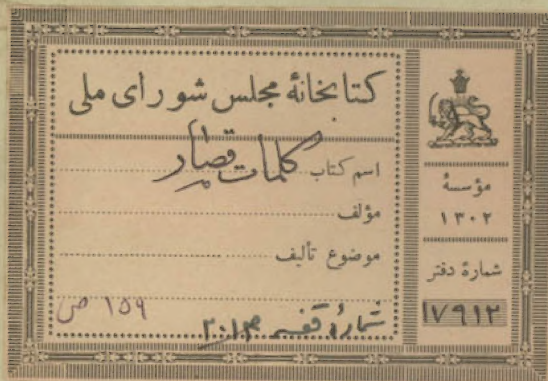 کتابخانهٔ مجلس شورای ملی
اسم کتاب کلمات قصار
مؤلف
موضوع تألیف
۱۵۹ ص
شماره قفسه
مؤسسهٔ
۱۳۰۲
شمارهٔ دفتر
۱۷۹۱۲